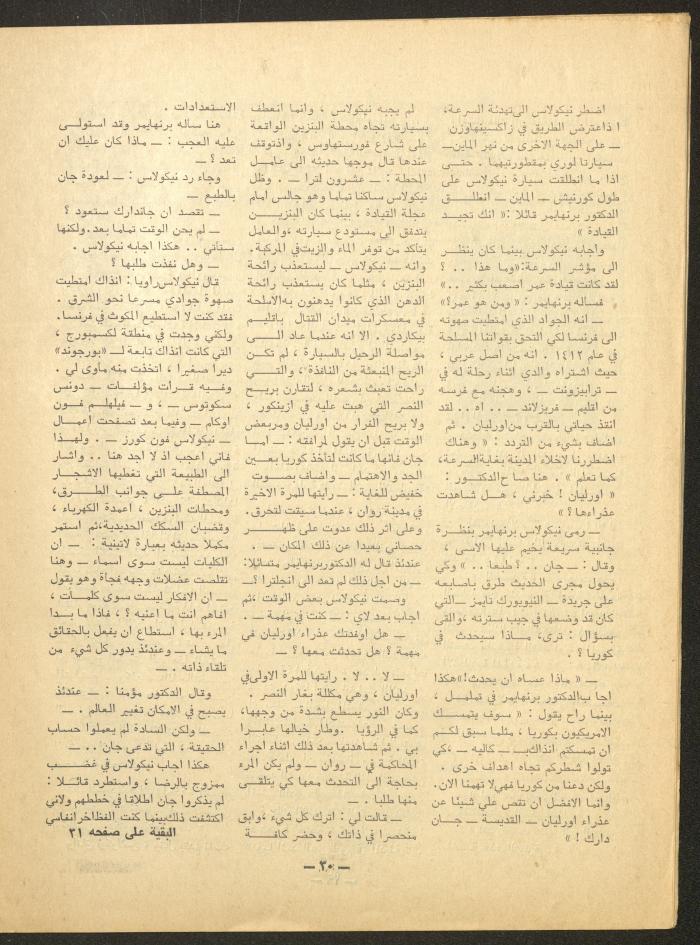 اضطر نيكولاس الى تهدئة السرعة،
ا ذاعترض الطريق في زاكسينهاوزن
— على الجهة الاخرى من نهر الماين —
سيارتا لوري بمقطورتيهما . حتى
اذا ما انطلقت سيارة نيكولاس على
طول كورنيش — الماين — انطلق
الدكتور برنهايمر قائلا :« انك تجيد
القيادة »
واجابه نيكولاس بينما كان ينظر
الى مؤشر السرعة:«وما هذا .. ؟
لقد كانت قيادة عمر اصعب بكثير ..»
فساله برنهايمر : « ومن هو عمر؟»
— انه الجواد الذي امتطيت صهوته
الى فرنسا لكي التحق بقواتنا المسلحة
في عام ١٤١٢ . انه من اصل عربي ،
حيث اشتراه والدي اثناء رحلة له في
— ترابيزونت — ، وهجنه مع فرسه
من اقليم — فريزلاند — .. اه .. لقد
انقذ حياتي بالقرب من اورليان . ثم
اضاف بشيء من التردد : « وهناك
اضطررنا لاخلاء المدينة بغاية السرعة،
كما تعلم » . هنا صاح الدكتور :
« اورليان ! خبرني ، هل شاهدت
عذراءها ؟ »
— رمى نيكولاس برنهايمر بنظرة
جانبية سريعة يخيم عليها الاسى ،
وقال : — جان .. ؟ طبعا .. » وكي
يحول مجرى الحديث طرق باصابعه
على جريدة — النيويورك تايمز — التي
كان قد وضعها في جيب سترته ،والقى
بسؤال : ترى، ماذا سيحدث في
كوريا ؟ .
— « ماذا عساه ان يحدث!»هكذا
اجا ب الدكتور برنهايمر في تململ ،
بينما راح يقول : « سوف يتمسك
الامريكيون بكوريا ، مثلما سبق لكم
ان تمسكتم انذاك بـ — كاليه — ،كي
تولوا شطركم تجاه اهداف خرى .
ولكن دعنا من كوريا فهي لا تهمنا الان.
وانما الافضل ان تقص علي شيئا عن
عذراء اورليان — القديسة — جان
دارك ! »
لم يجبه نيكولاس ، وانما انعطف
بسيارته تجاه محطة البنزين الواقعة
على شارع فورستهاوس ، واذتوقف
عندها قال موجها حديثه الى عامل
المحطة : — عشرون لترا — . وظل
نيكولاس ساكنا تماما وهو جالس امام
عجلة القيادة ، بينما كان البنزين
يتدفق الى مستودع سيارته ،والعامل
يتأكد من توفر الماء والزيت في المركبة.
وانه — نيكولاس — ليستعذب رائحة
البنزين ، مثلما كان يستعذب رائحة
الدهن الذي كانوا يدهنون به الاسلحة
في معسكرات ميدان القتال باقليم
بيكاردي . الا انه عندما عاد الى
مواصلة الرحيل بالسيارة ، لم تكن
الريح المنبعثة من النافذة ، والتي
راحت تعبث بشعره ، لتقارن بريح
النصر التي هبت عليه في ازينكور ،
ولا بريح الفرار من اورليان ومربعض
الوقت قبل ان يقول لمرافقه : — اما
جان فانها ما كانت لتأخذ كوريا بعين
الجد والاهتمام — واضاف بصوت
خفيض للغاية : — رايتها للمرة الاخيرة
في مدينة روان ، عندما سيقت لتحرق.
وعلى اثر ذلك عدوت على ظهر
حصاني بعيدا عن ذلك المكان — .
عندئذ قال له الدكتور برنهايمر متسائلا:
— من اجل ذلك لم تعد الى انجلترا ؟—
وصمت نيكولاس بعض الوقت ،ثم
اجاب بعد لاي : — كنت في مهمة — .
— هل اوفدتك عذراء اورليان في
مهمة ؟ هل تحدثت معها ؟ —
— لا .. لا . رايتها للمرة الاولى في
اورليان ، وهي مكللة بغار النصر .
وكان النور يسطع بشدة من وجهها،
كما في الرؤيا .وطار خيالها عابرا
بي . ثم شاهدتها بعد ذلك اثناء اجراء
المحاكمة في — روان — ولم يكن المرء
بحاجة الى التحدث معها كي يتلقى
منها طلبا . —
— قالت لي : اترك كل شيء ،وابق
منحصرا في ذاتك ، وحضر كافة
الاستعدادات .
هنا ساله برنهايمر وقد استولى
عليه العجب : — ماذا كان عليك ان
تعد ؟ —
وجاء رد نيكولاس : — لعودة جان
بالطبع —
— تقصد ان جاندارك ستعود ؟
— لم يحن الوقت تماما بعد .ولكنها
ستاتي .. هكذا اجابه نيكولاس .
— وهل نفذت طلبها ؟
قال نيكولاس راويا : انذاك امتطيت
صهوة جوادي مسرعا نحو الشرق .
فقد كنت لا استطيع المكوث في فرنسا.
ولكني وجدت في منطقة لكسمبورج ،
التي كانت انذاك تابعة لـ «بورجوند»
ديرا صغيرا ، اتخذت منه ماوى لي .
وفيه قرات مؤلفات — دونس
سكوتوس — ، و — فيلهلم فون
اوكام — وفيما بعد تصفحت اعمال
— نيكولاس فون كورز — . ولهذا
فاني اعجب اذ لا اجد هنا .. واشار
الى الطبيعة التي تغطيها الاشجار
المصطفة على جوانب الطرق،
ومحطات البنزين ، اعمدة الكهرباء ،
وقضبان السكك الحديدية،ثم استمر
مكملا حديثه بعبارة لاتينية : — ان
الكليات ليست سوى اسماء — وهنا
تقلصت عضلات وجهه فجاة وهو يقول
— ان الافكار ليست سوى كلمات ،
افاهم انت ما اعنيه ؟ ، فاذا ما بدا
المرء بها ، استطاع ان يفعل بالحقائق
ما يشاء — وعندئذ يدور كل شيء من
تلقاء ذاته . —
وقال الدكتور مؤمنا : — عندئذ
يصبح في الامكان تغيير العالم . —
— ولكن السادة لم يعملوا حساب
الحقيقة ، التي تدعى جان .. —
هكذا اجاب نيكولاس في غضب
ممزوج بالرضا ، واستطرد قائلا :
لم يذكروا جان اطلاقا في خططهم ولاني
اكتشفت ذلك بينما كنت الفظ اخر انفاسي
البقية على صفحه ٣١
— ٣٠ —